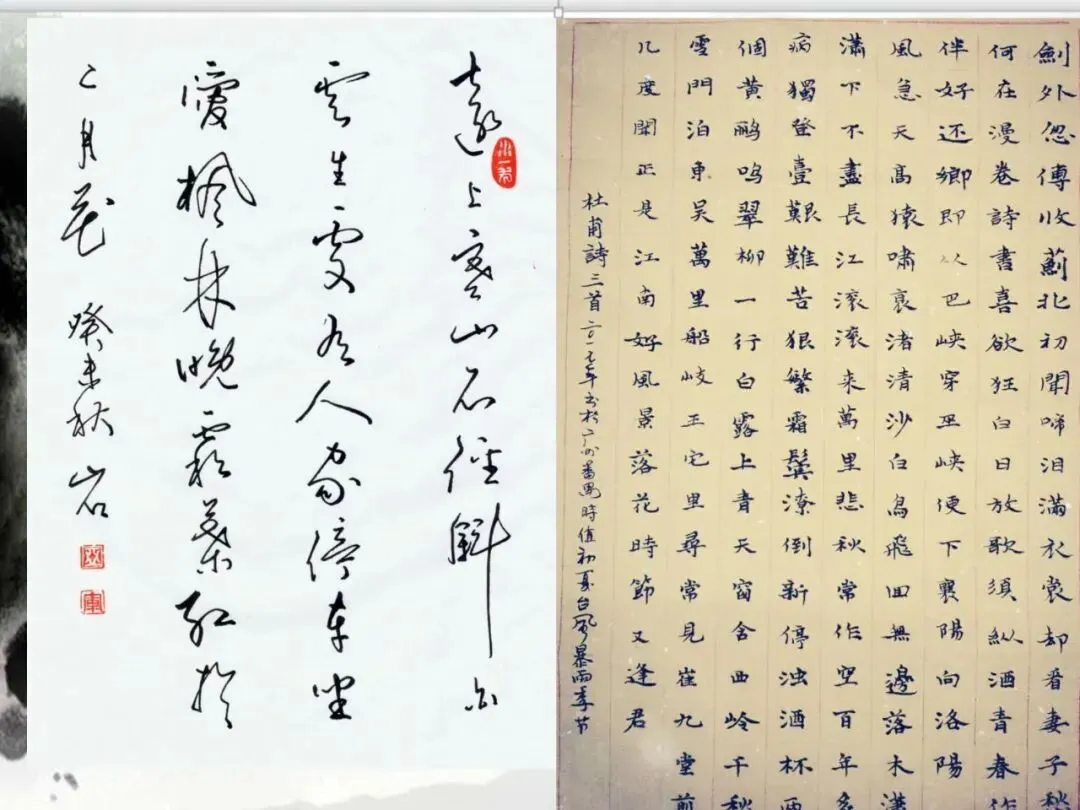 遠上寒山石徑斜白
雲生處有人家停車坐
愛楓林晚霜葉紅於
二月花 癸未秋 岩
劍外忽傳收薊北初聞啼泪滿衣裳却看妻子愁
何在漫卷詩書喜欲狂白日放歌須縱酒青春作
伴好还鄉即从巴峽穿巫峽便下襄陽向洛陽
風急天高猿嘯哀渚清沙白鳥飛回無邊落木瀟
瀟下不盡長江滚滚来萬里悲秋常作空百年多
病獨登臺艱難苦狠繁霜鬓潦倒新停浊酒杯两
個黄鹂鸣翠柳一行白露上青天窗含西岭千秋
雪門泊東吴萬里船岐王宅里尋常見崔九堂前
几度聞正是江南好風景落花時節又逢君
杜甫詩三首二〇一七年书於广州番禺時值初夏台風暴雨季节